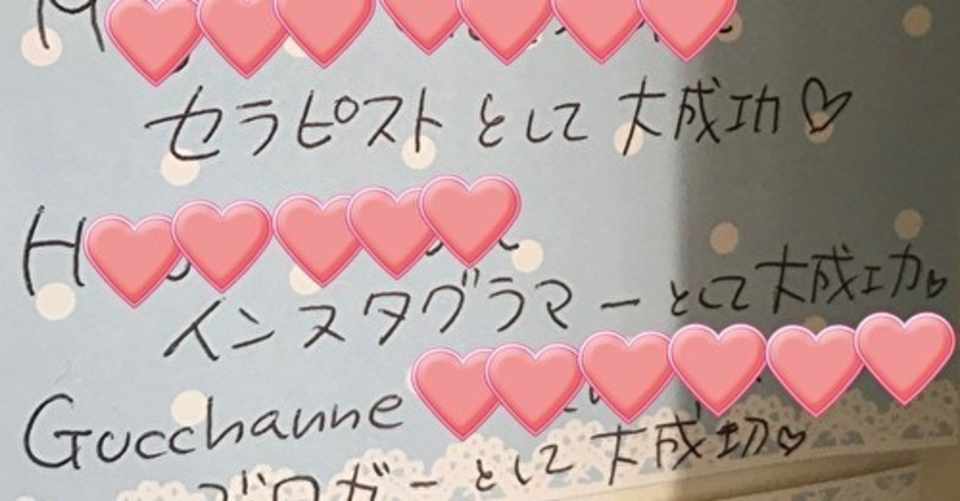 M
セラピストとして大成功♡
H
インスタグラマーとして大成功♡
Gucchanne
ブロガーとして大成功♡